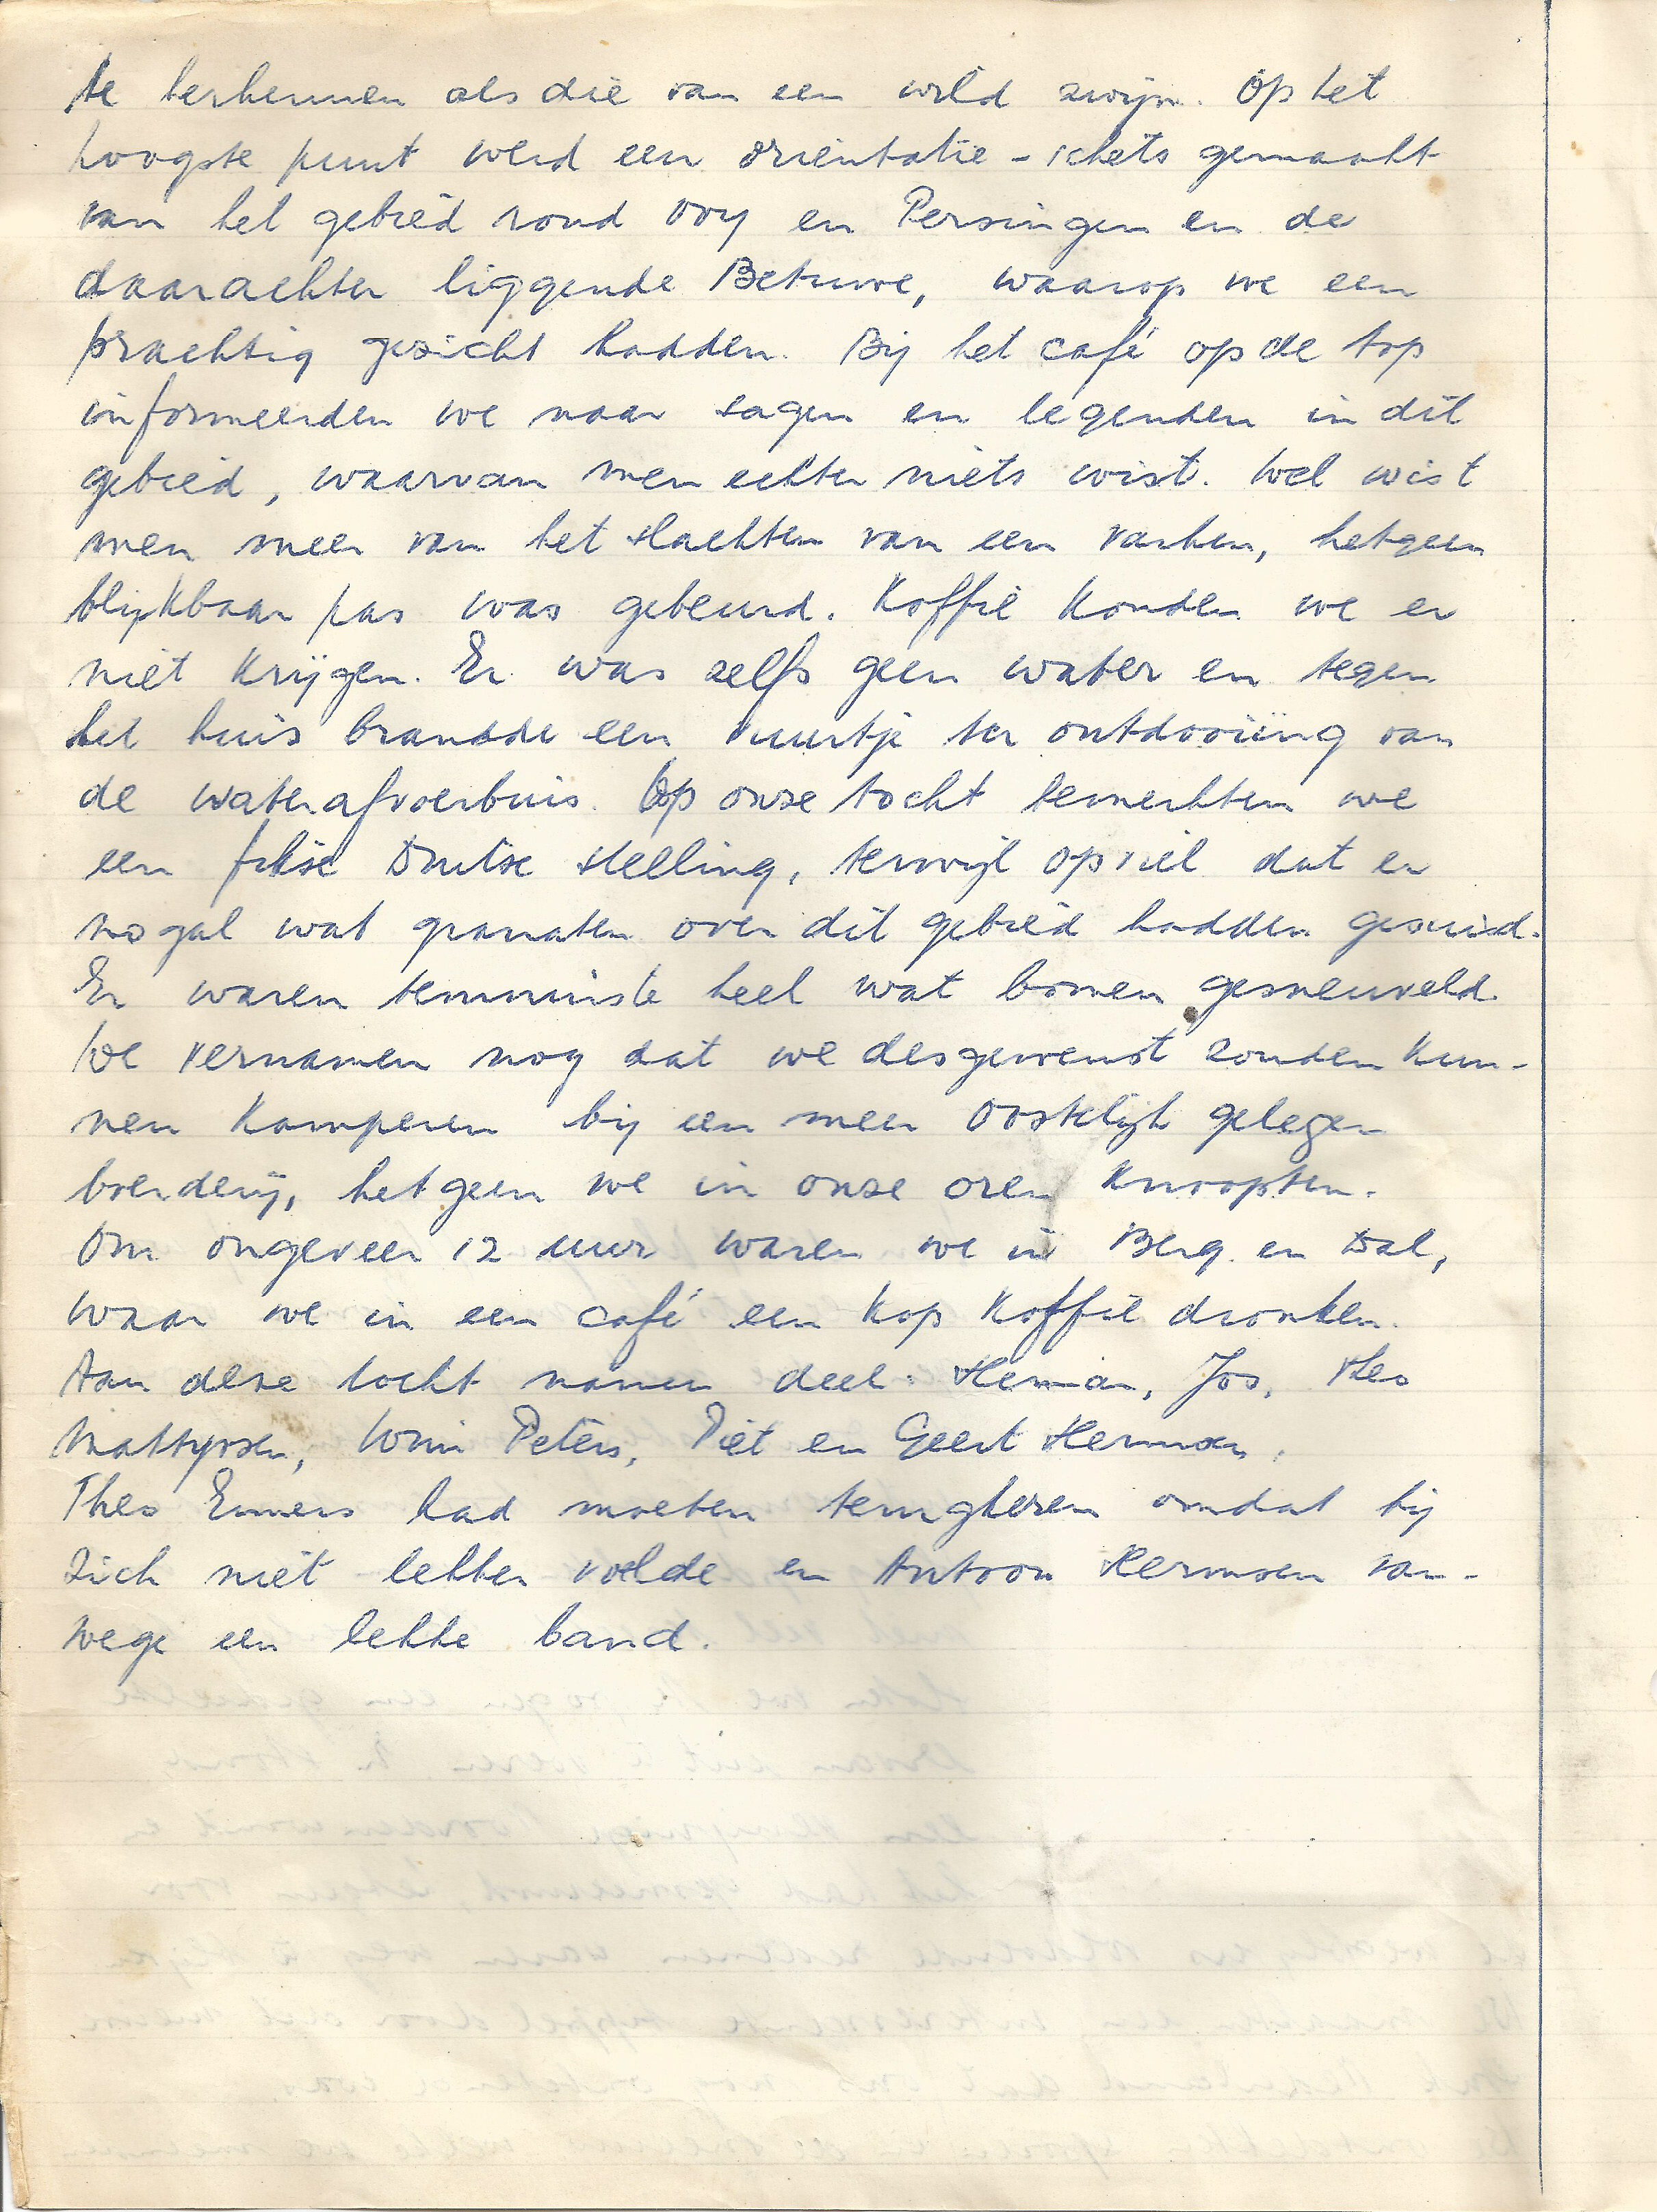 te herkennen als die van een wild zwijn. Op het
hoogste punt werd een oriëntatie-schets gemaakt
van het gebied rond Ooy en Persingen en de
daarachter liggende Betuwe, waarop we een
prachtig gezicht hadden. Bij het café op de top
informeerden we naar sagen en legenden in dit
gebied, waarvan men echter niets wist. Wel wist
men meer van het slachten van een varken, hetgeen
blijkbaar pas was gebeurd. Koffie konden we er
niet krijgen. Er was zelfs geen water en tegen
het huis brandde een vuurtje ter ontdooiing van
de waterafvoerbuis. Op onze tocht bemerkten we
een Duitse stelling, terwijl opviel dat er
nogal wat granaten over dit gebied hadden gesuisd.
Er waren tenminste heel wat bomen gesneuveld.
We vernamen nog dat we desgewenst zouden kun-
nen kamperen bij een meer oostelijk gelegen
boerderij, hetgeen we in onze oren knoopten.
Om ongeveer 12 uur waren we in Berg en Dal,
waar we in een café een kop koffie dronken.
Aan deze tocht namen deel: Herman, Jos, Theo
Mattyssen, Wim Peters, Piet en Geert Hermsen.
Theo Emmers had moeten terugkeren omdat hij
zich niet lekker voelde en Antoon Hermsen van-
wege een lekke band.